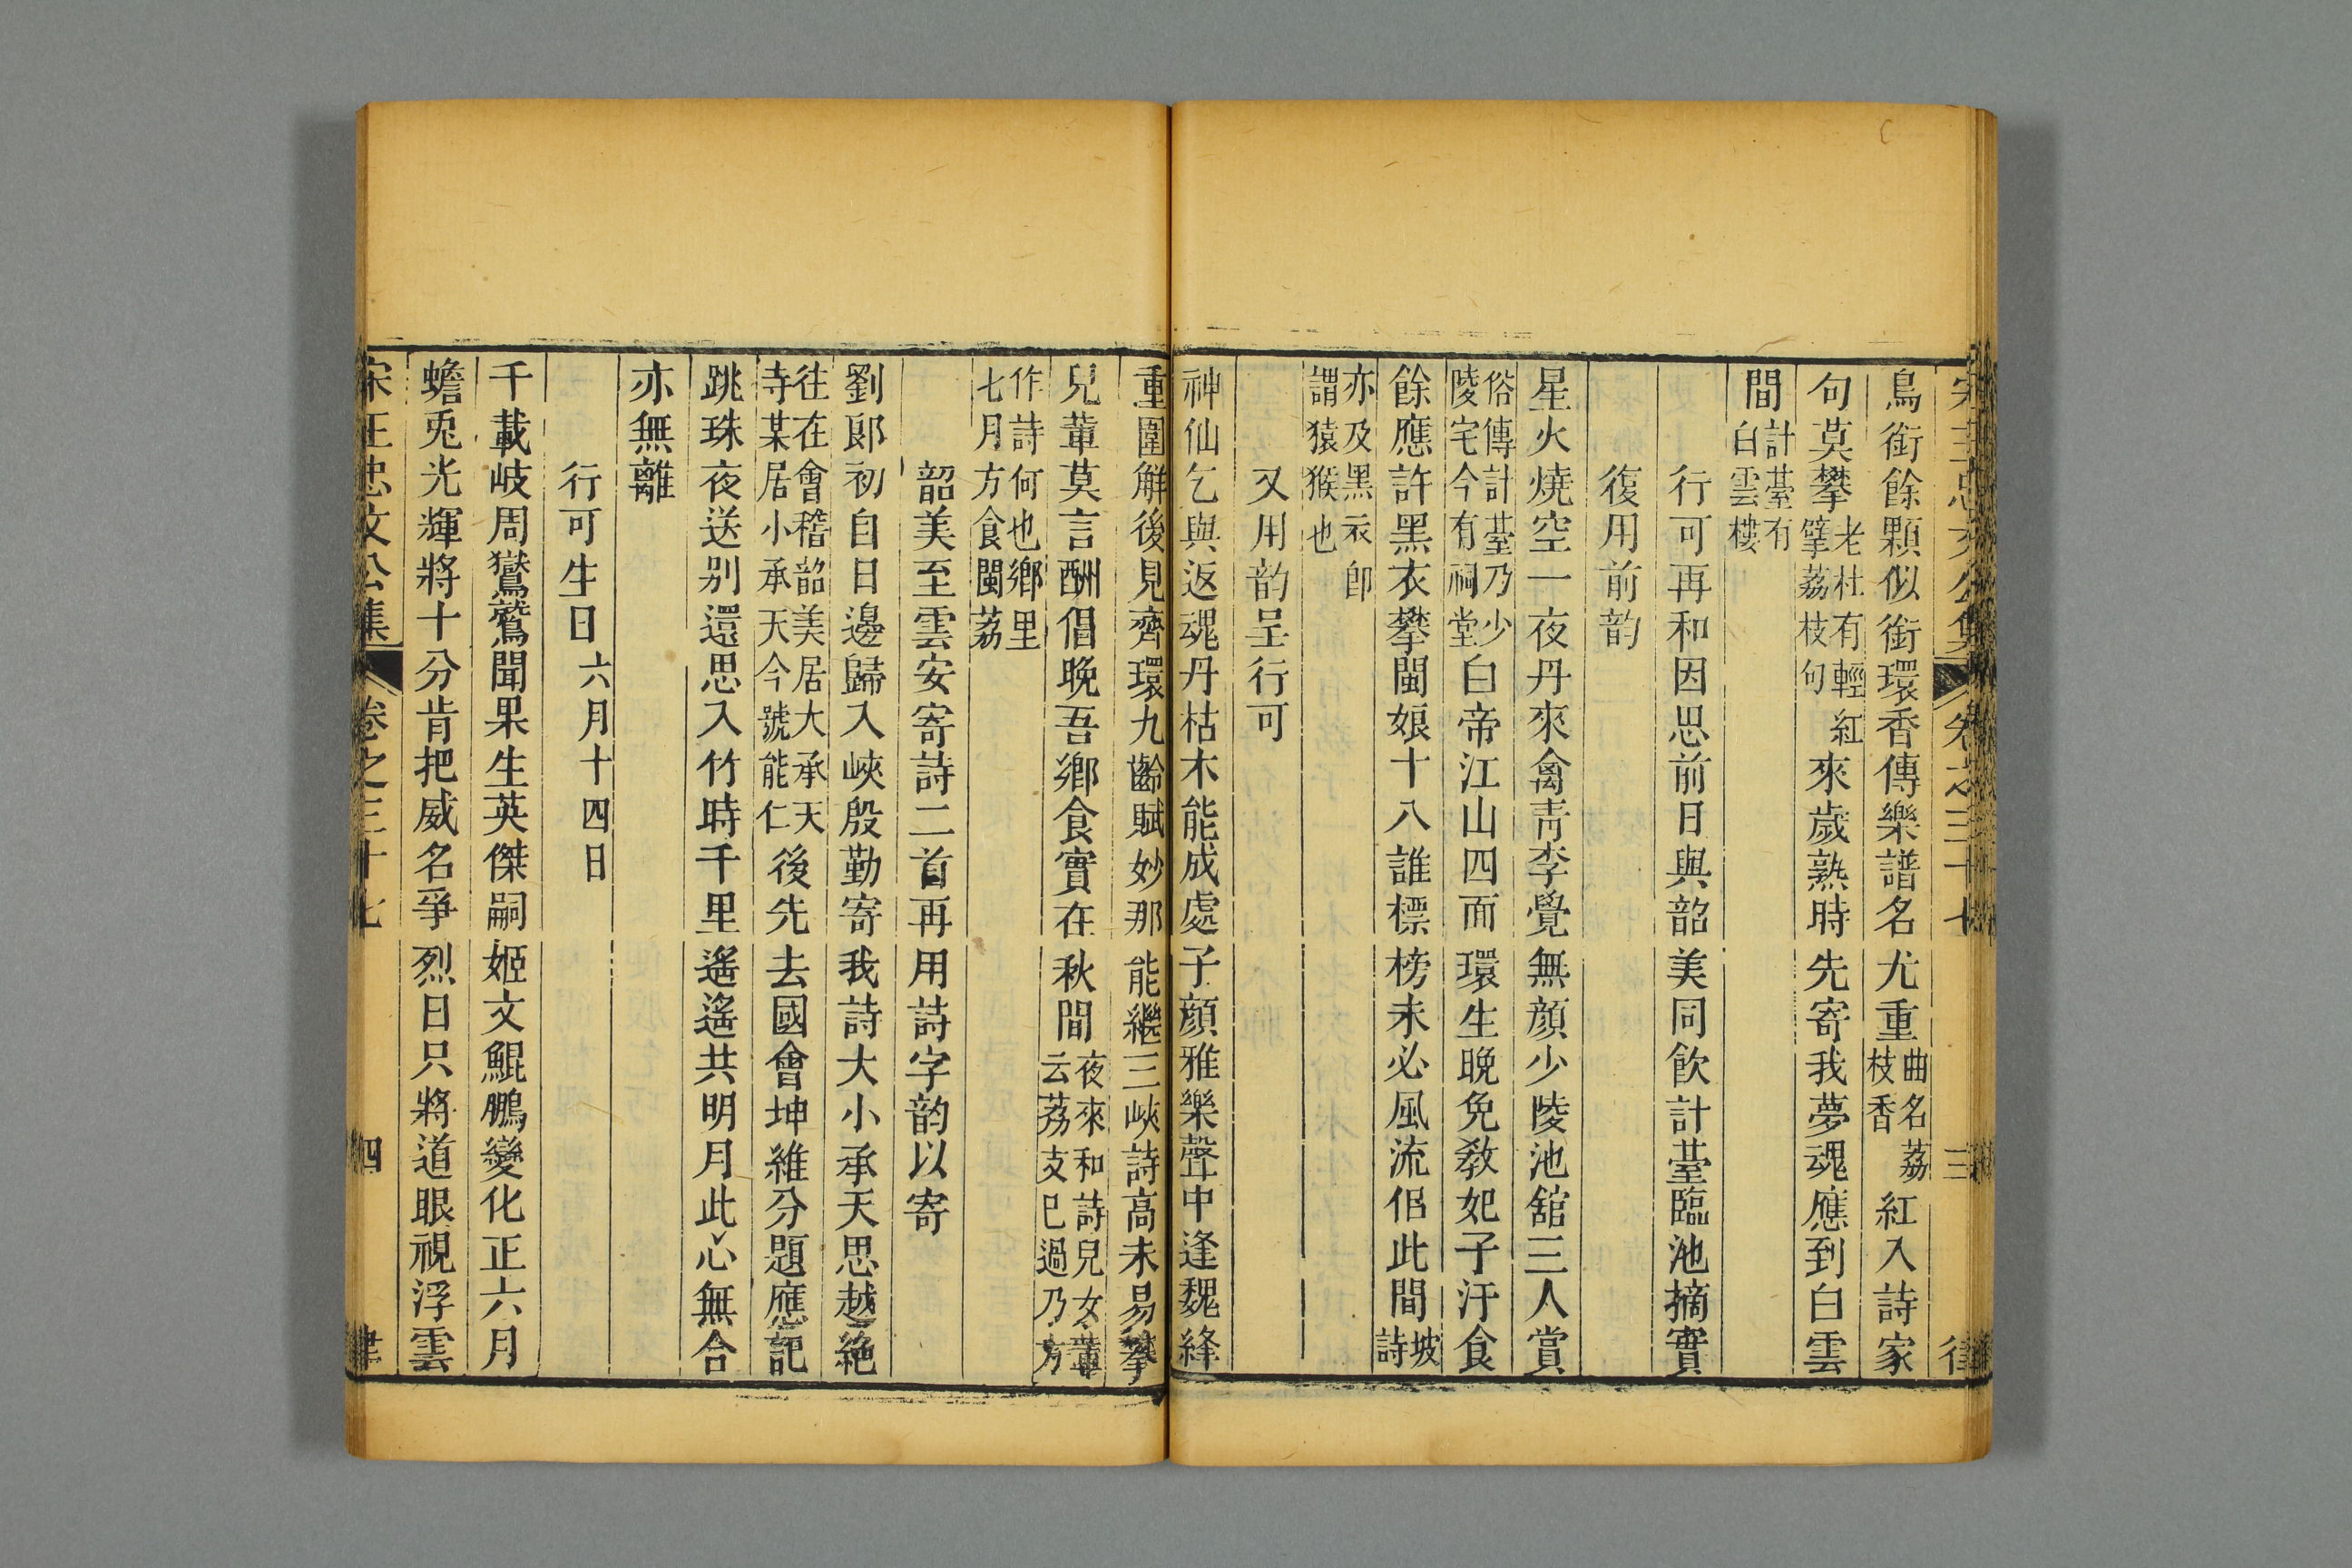 宋王忠文公集 卷之三十七 三 律
鳥銜餘顆似銜環香傳樂譜名尤重曲名荔枝香紅入詩家
句莫攀老杜有輕紅擘荔枝句來歲熟時先寄我夢魂應到白雲
間計臺有白雲樓
行可再和因思前日與韶美同飲計臺臨池摘實
復用前韵
星火燒空一夜丹來禽青李覺無顏少陵池舘三人賞
俗傳計臺乃少陵宅今有祠堂白帝江山四面環生晚免教妃子汙食
餘應許黑衣攀閩娘十八誰標榜未必風流侶此間坡詩
亦及黑衣卽謂猿猴也
又用韵呈行可
神仙乞與返魂丹枯木能成處子顏雅樂聲中逢魏絳
重圍解後見齊環九齡賦妙那能繼三峽詩高未易攀
兒輩莫言酬倡晚吾鄉食實在秋間夜來和詩兒女輩云荔支已過乃方
作詩何也鄉里七月方食閩荔
韶美至雲安寄詩二首再用詩字韵以寄
劉郎初自日邊歸入峽殷勤寄我詩大小承天思越絶
往在會稽韶美居大承天寺某居小承天今號能仁後先去國會坤維分題應記
跳珠夜送别還思入竹時千里遙遙共明月此心無合
亦無離
行可生日六月十四日
千載岐周鸑鷟聞果生英傑嗣姬文鯤鵬變化正六月
蟾兎光輝將十分肯把威名爭烈日只將道眼視浮雲
宋王忠文公集 卷之三十七 四 律